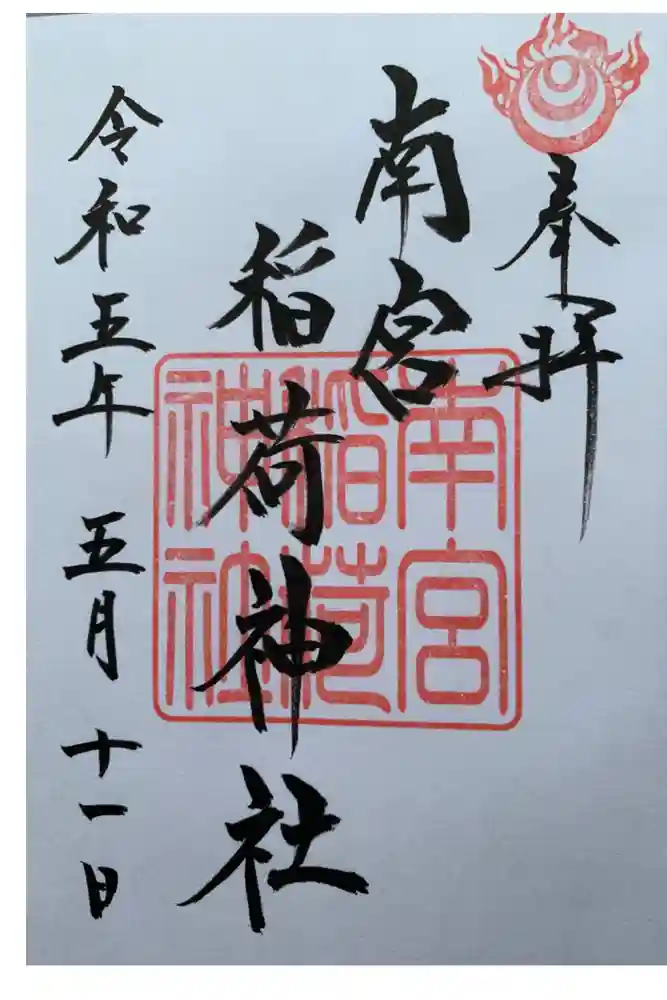 奉拝
南宮
稲荷神社
令和五年 五月 十一日
南宮
稲荷
神社